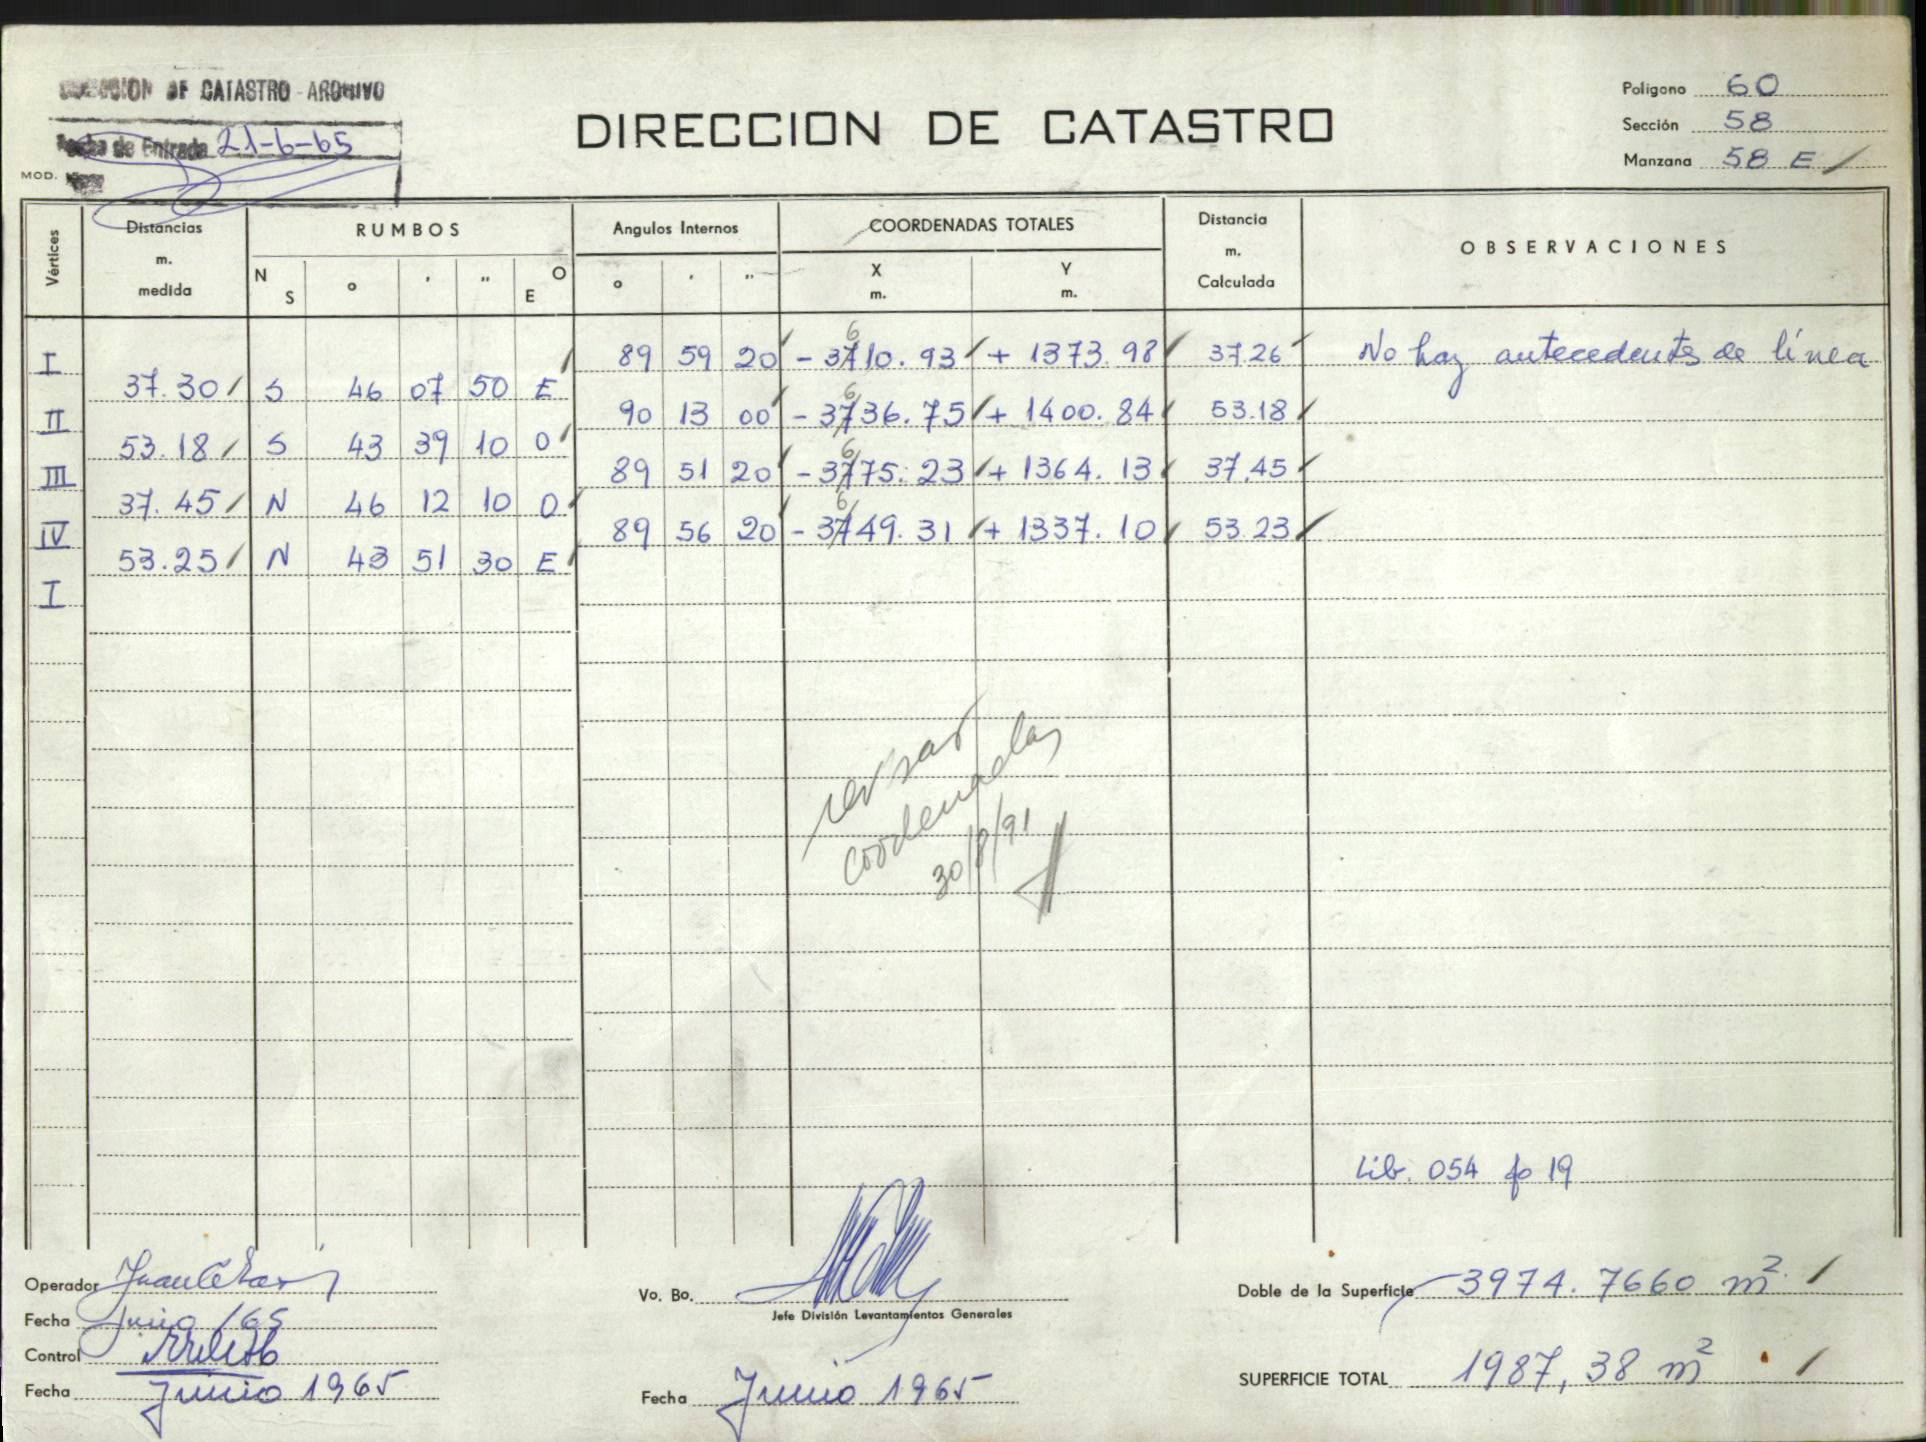 DIRECCION DE CATASTRO - ARCHIVO
Fecha de Entrada 21-6-65
MOD.
DIRECCION DE CATASTRO
Polígono 60
Sección 58
Manzana 58 E
Vértices
Distancias m. medida
RUMBOS
N S o ' " O E
Angulos Internos
o ' "
COORDENADAS TOTALES
X m. Y m.
Distancia m. Calculada
OBSERVACIONES
I 89 59 20 - 3710.93 + 1373.98 37.26 No hay antecedentes de línea
6
37.30 S 46 07 50 E
II 90 13 00 - 3736.75 + 1400.84 53.18
6
53.18 S 43 39 10 O
III 89 51 20 - 3775.23 + 1364.13 37.45
6
37.45 N 46 12 10 O
IV 89 56 20 - 3749.31 + 1337.10 53.23
6
53.25 N 43 51 30 E
I
revisar
coordenadas
30/8/91
Lib. 054 fo 19
Operador
Fecha Junio /65
Control
Fecha Junio 1965
Vo. Bo.
Jefe División Levantamientos Generales
Fecha Junio 1965
Doble de la Superficie 3974.7660 m2
SUPERFICIE TOTAL 1987,38 m2